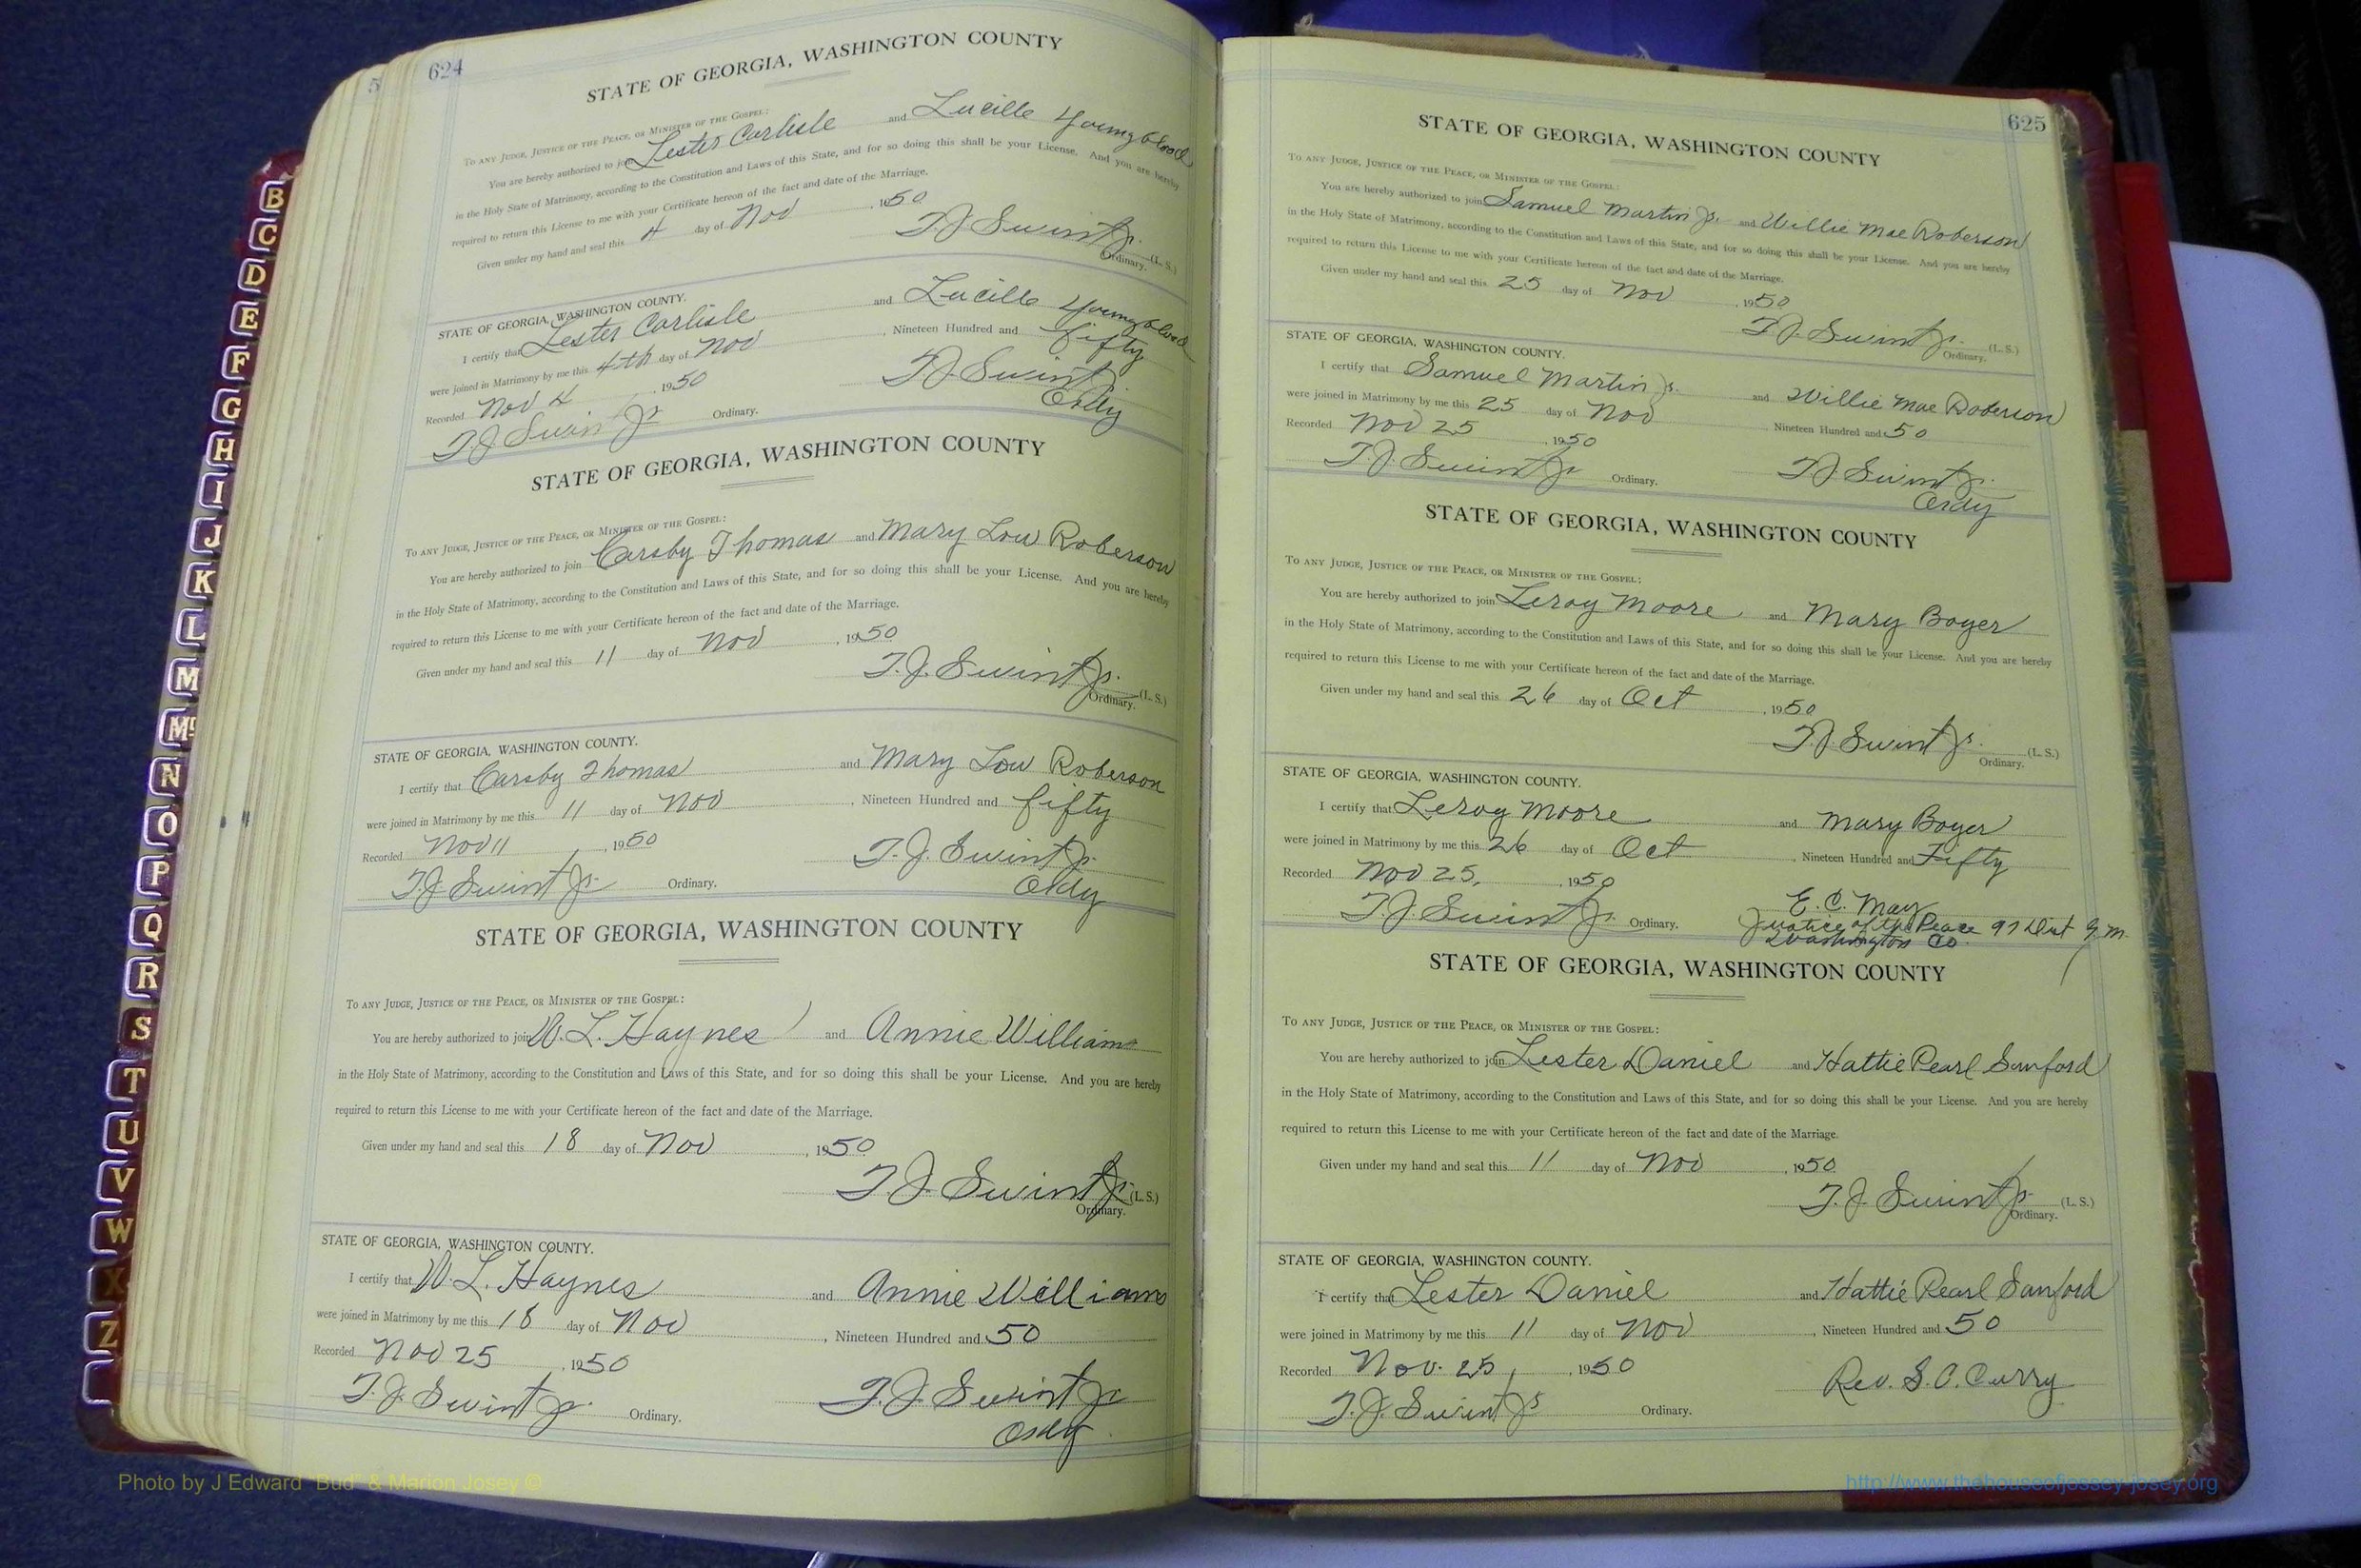 5
624
STATE OF GEORGIA, WASHINGTON COUNTY
To any Judge, Justice of the Peace, or Minister of the Gospel:
You are hereby authorized to join Lester Carlisle and Lucille Youngblood
in the Holy State of Matrimony, according to the Constitution and Laws of this State, and for so doing this shall be your License. And you are hereby
required to return this License to me with your Certificate hereon of the fact and date of the Marriage.
Given under my hand and seal this 4 day of Nov, 1950
T.J. Swint Jr. (L. S.)
Ordinary.
STATE OF GEORGIA, WASHINGTON COUNTY.
I certify that Lester Carlisle and Lucille Youngblood
were joined in Matrimony by me this 4th day of Nov, Nineteen Hundred and fifty
Recorded Nov 4, 1950 T.J. Swint
T.J. Swint Jr Ordinary. Ordy
STATE OF GEORGIA, WASHINGTON COUNTY
To any Judge, Justice of the Peace, or Minister of the Gospel:
You are hereby authorized to join Carsby Thomas and Mary Lou Roberson
in the Holy State of Matrimony, according to the Constitution and Laws of this State, and for so doing this shall be your License. And you are hereby
required to return this License to me with your Certificate hereon of the fact and date of the Marriage.
Given under my hand and seal this 11 day of Nov, 1950
T.J. Swint Jr. (L. S.)
Ordinary.
STATE OF GEORGIA, WASHINGTON COUNTY.
I certify that Carsby Thomas and Mary Lou Roberson
were joined in Matrimony by me this 11 day of Nov, Nineteen Hundred and fifty
Recorded Nov 11, 1950 T.J. Swint Jr.
T.J. Swint Jr. Ordinary. Ordy
STATE OF GEORGIA, WASHINGTON COUNTY
To any Judge, Justice of the Peace, or Minister of the Gospel:
You are hereby authorized to join W. L. Haynes and Annie Williams
in the Holy State of Matrimony, according to the Constitution and Laws of this State, and for so doing this shall be your License. And you are hereby
required to return this License to me with your Certificate hereon of the fact and date of the Marriage.
Given under my hand and seal this 18 day of Nov, 1950
T.J. Swint Jr. (L. S.)
Ordinary.
STATE OF GEORGIA, WASHINGTON COUNTY.
I certify that W. L. Haynes and Annie Williams
were joined in Matrimony by me this 18 day of Nov, Nineteen Hundred and 50
Recorded Nov 25, 1950 T.J. Swint Jr
T.J. Swint Jr. Ordinary. Ordy
625
STATE OF GEORGIA, WASHINGTON COUNTY
To any Judge, Justice of the Peace, or Minister of the Gospel:
You are hereby authorized to join Samuel Martin Jr. and Willie Mae Roberson
in the Holy State of Matrimony, according to the Constitution and Laws of this State, and for so doing this shall be your License. And you are hereby
required to return this License to me with your Certificate hereon of the fact and date of the Marriage.
Given under my hand and seal this 25 day of Nov, 1950
T.J. Swint Jr. (L. S.)
Ordinary.
STATE OF GEORGIA, WASHINGTON COUNTY.
I certify that Samuel Martin Jr. and Willie Mae Roberson
were joined in Matrimony by me this 25 day of Nov, Nineteen Hundred and 50
Recorded Nov 25, 1950
T.J. Swint Jr Ordinary. T.J. Swint Jr.
Ordy
STATE OF GEORGIA, WASHINGTON COUNTY
To any Judge, Justice of the Peace, or Minister of the Gospel:
You are hereby authorized to join Leroy Moore and Mary Boyer
in the Holy State of Matrimony, according to the Constitution and Laws of this State, and for so doing this shall be your License. And you are hereby
required to return this License to me with your Certificate hereon of the fact and date of the Marriage.
Given under my hand and seal this 26 day of Oct, 1950
T.J. Swint Jr. (L. S.)
Ordinary.
STATE OF GEORGIA, WASHINGTON COUNTY.
I certify that Leroy Moore and Mary Boyer
were joined in Matrimony by me this 26 day of Oct, Nineteen Hundred and Fifty
Recorded Nov 25, 1950 E. C. May
T.J. Swint Jr. Ordinary. Justice of the Peace 97 Dist G.M.
Washington Co.
STATE OF GEORGIA, WASHINGTON COUNTY
To any Judge, Justice of the Peace, or Minister of the Gospel:
You are hereby authorized to join Lester Daniel and Hattie Pearl Sanford
in the Holy State of Matrimony, according to the Constitution and Laws of this State, and for so doing this shall be your License. And you are hereby
required to return this License to me with your Certificate hereon of the fact and date of the Marriage.
Given under my hand and seal this 11 day of Nov, 1950
T.J. Swint Jr. (L. S.)
Ordinary.
STATE OF GEORGIA, WASHINGTON COUNTY.
I certify that Lester Daniel and Hattie Pearl Sanford
were joined in Matrimony by me this 11 day of Nov, Nineteen Hundred and 50
Recorded Nov. 25, 1950 Rev. S. C. Curry
T.J. Swint Jr Ordinary.
B
C
D
E
F
G
H
I
J
K
L
M
Mc
N
O
P
Q
R
S
T
U
V
W
X
Z
Photo by J Edward "Bud" & Marion Josey ©
http://www.thehouseofjossey-josey.org